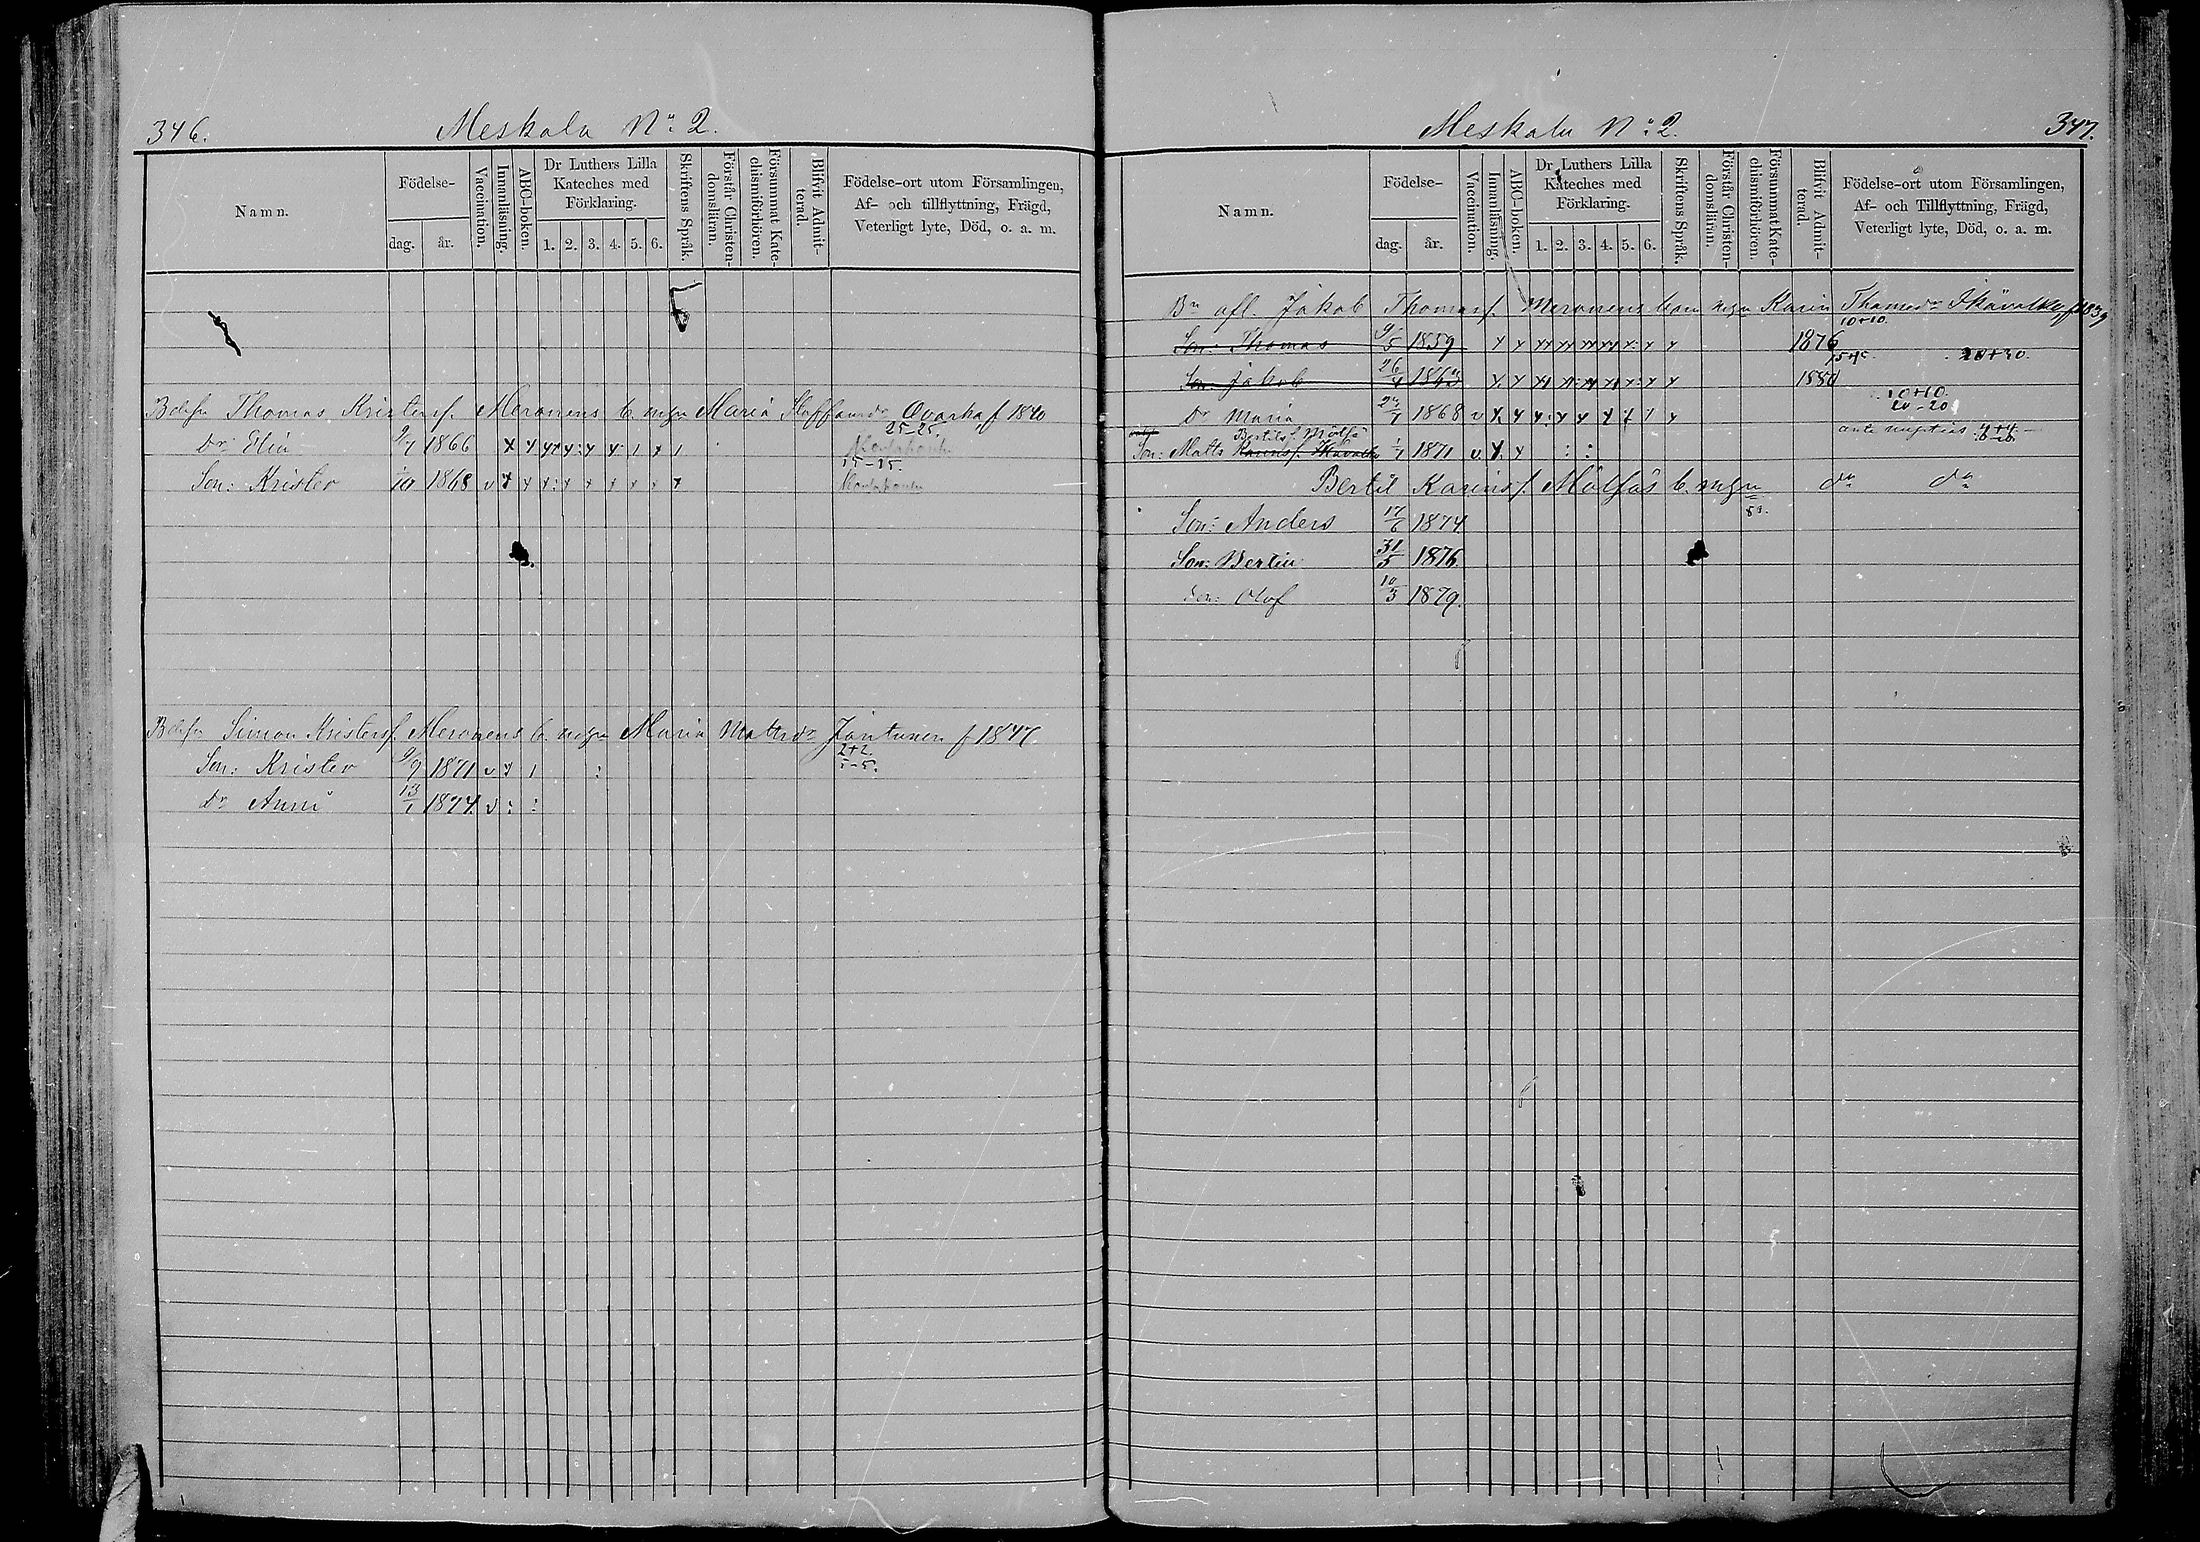 346.
Meskala No 2.
Namn.
Födelse-
dag. år.
Vaccination.
Innanläsning.
ABC-boken.
Dr Luthers Lilla Kateches med Förklaring.
1. 2. 3. 4. 5. 6.
Skriftens Språk.
Förstår Christen-domsläran.
Försummat Kate-chismiförhören.
Blifvit Admit-terad.
Födelse-ort utom Församlingen,
Af- och tillflyttning, Frägd,
Veterligt lyte, Död, o. a. m.
Thomas Kristersf. Meronens b. mgn Maria Staffansdr Qvarka f 1840
25-25.
Dr Elin 9/7 1866
15-15.
Son: Krister 1868
Simon Kristersf. Meronens b. mgn Maria Mattsdr Jantunen f 1847
2+2
5-5.
Son: Krister 9/9 1871
Dr Anna 13/1 1874
347.
Meskala No 2.
Namn.
Födelse-
dag. år.
Vaccination.
Innanläsning.
ABC-boken.
Dr Luthers Lilla Kateches med Förklaring.
1. 2. 3. 4. 5. 6.
Skriftens Språk.
Förstår Christen-domsläran.
Försummat Kate-chismiförhören.
Blifvit Admit-terad.
Födelse-ort utom Församlingen,
Af- och Tillflyttning, Frägd,
Veterligt lyte, Död, o. a. m.
Bn afl. Jakob Thomasf. Meronens mgn Karin Thomasdr f 1839
10+10.
Son: Thomas 9/5 1859 1876
20+30.
Son: Jakob 26/4 1880
10+10
20-20
Dr Maria 1868
ante nuptias 4+4
Bertilsf. Mölsä
Son: Matts Karinsf. 1/1 1871
Bertil Karinsf. Mölsäs b. mgn dn dn
Son: Anders 17/6 1874
Son: Bertil 31/5 1876
Son: Olof 10/3 1879.